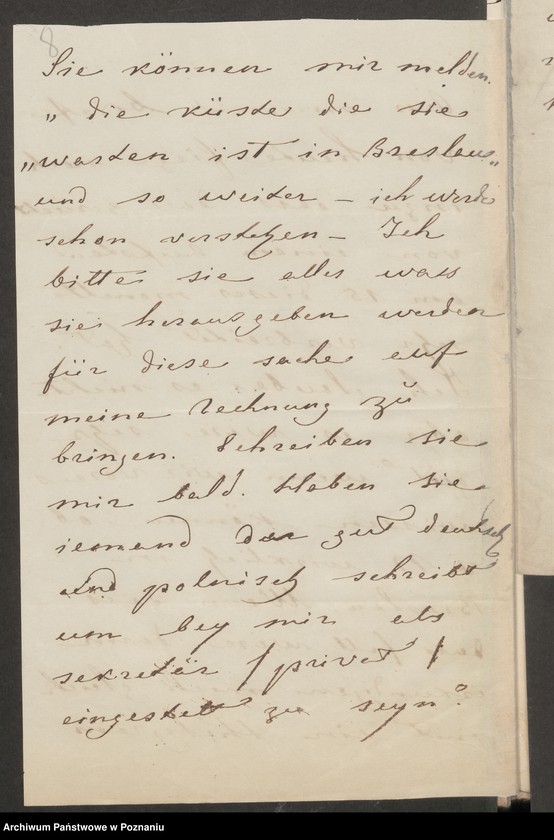 8
Sie können mir melden.
„ die küste die sie
„warten ist in Breslau„
und so weiter – ich werde
schon verstehen – Ich
bitte sie alles was
sie herausgeben werden
für diese sache auf
meine Rechnung zu
bringen. Schreiben sie
mir bald. Haben sie
iemand der gut deutsch
und polnisch schreibt
um bey mir als
sekretär / privat /
eingestellt zu seyn?
Archiwum Państwowe w Poznaniu